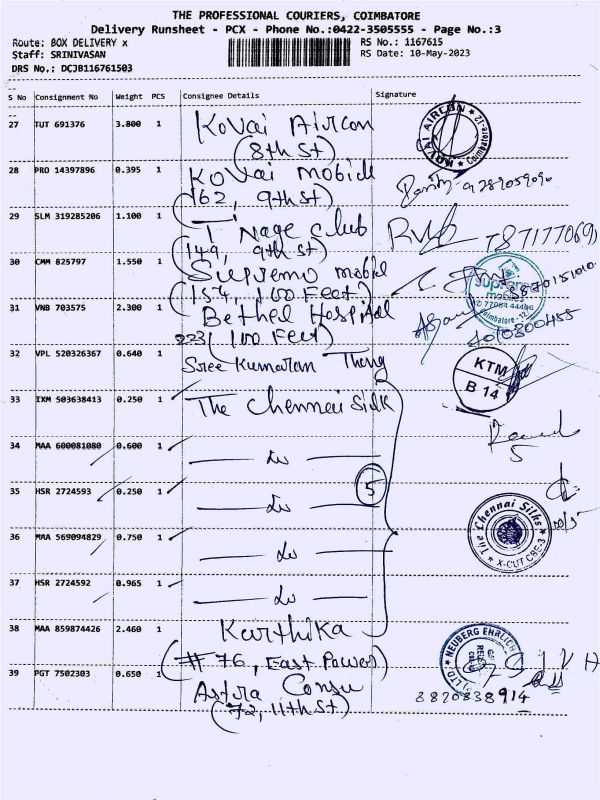 THE PROFESSIONAL COURIERS, COIMBATORE
Delivery Runsheet - PCX - Phone No.:0422-3505555 - Page No.:3
Route: BOX DELIVERY x RS No.: 1167615
Staff: SRINIVASAN RS Date: 10-May-2023
DRS No.: DCJB116761503
S No Consignment No Weight PCS Consignee Details Signature
27 TUT 691376 3.800 1 Kovai Aircon
(8th St)
KOVAI AIRCON Coimbatore-12
28 PRO 14397896 0.395 1 Kovai Mobile
162, 9th St)
29 SLM 319285206 1.100 1 T Nage Club
(149, 9th St)
30 CMM 825797 1.550 1 Supremo mobile
(154, 100 Feet)
31 VNB 703575 2.300 1 Bethel Hospital
223( 100 Feet)
32 VPL 520326367 0.640 1 Sree Kumaran Thang
KTM
B 14
33 IXM 503638413 0.250 1 The Chennai Silk
34 MAA 600081080 0.600 1
35 HSR 2724593 0.250 1
5
36 MAA 569094829 0.750 1
The Chennai Silks
X-CUT CBE-3
37 HSR 2724592 0.965 1
38 MAA 859874426 2.460 1 Karthika
(#76, East Power)
NEUBERG EHRLICH
39 PGT 7502303 0.650 1 Astra Consu
(72, 11th St)
8820838914